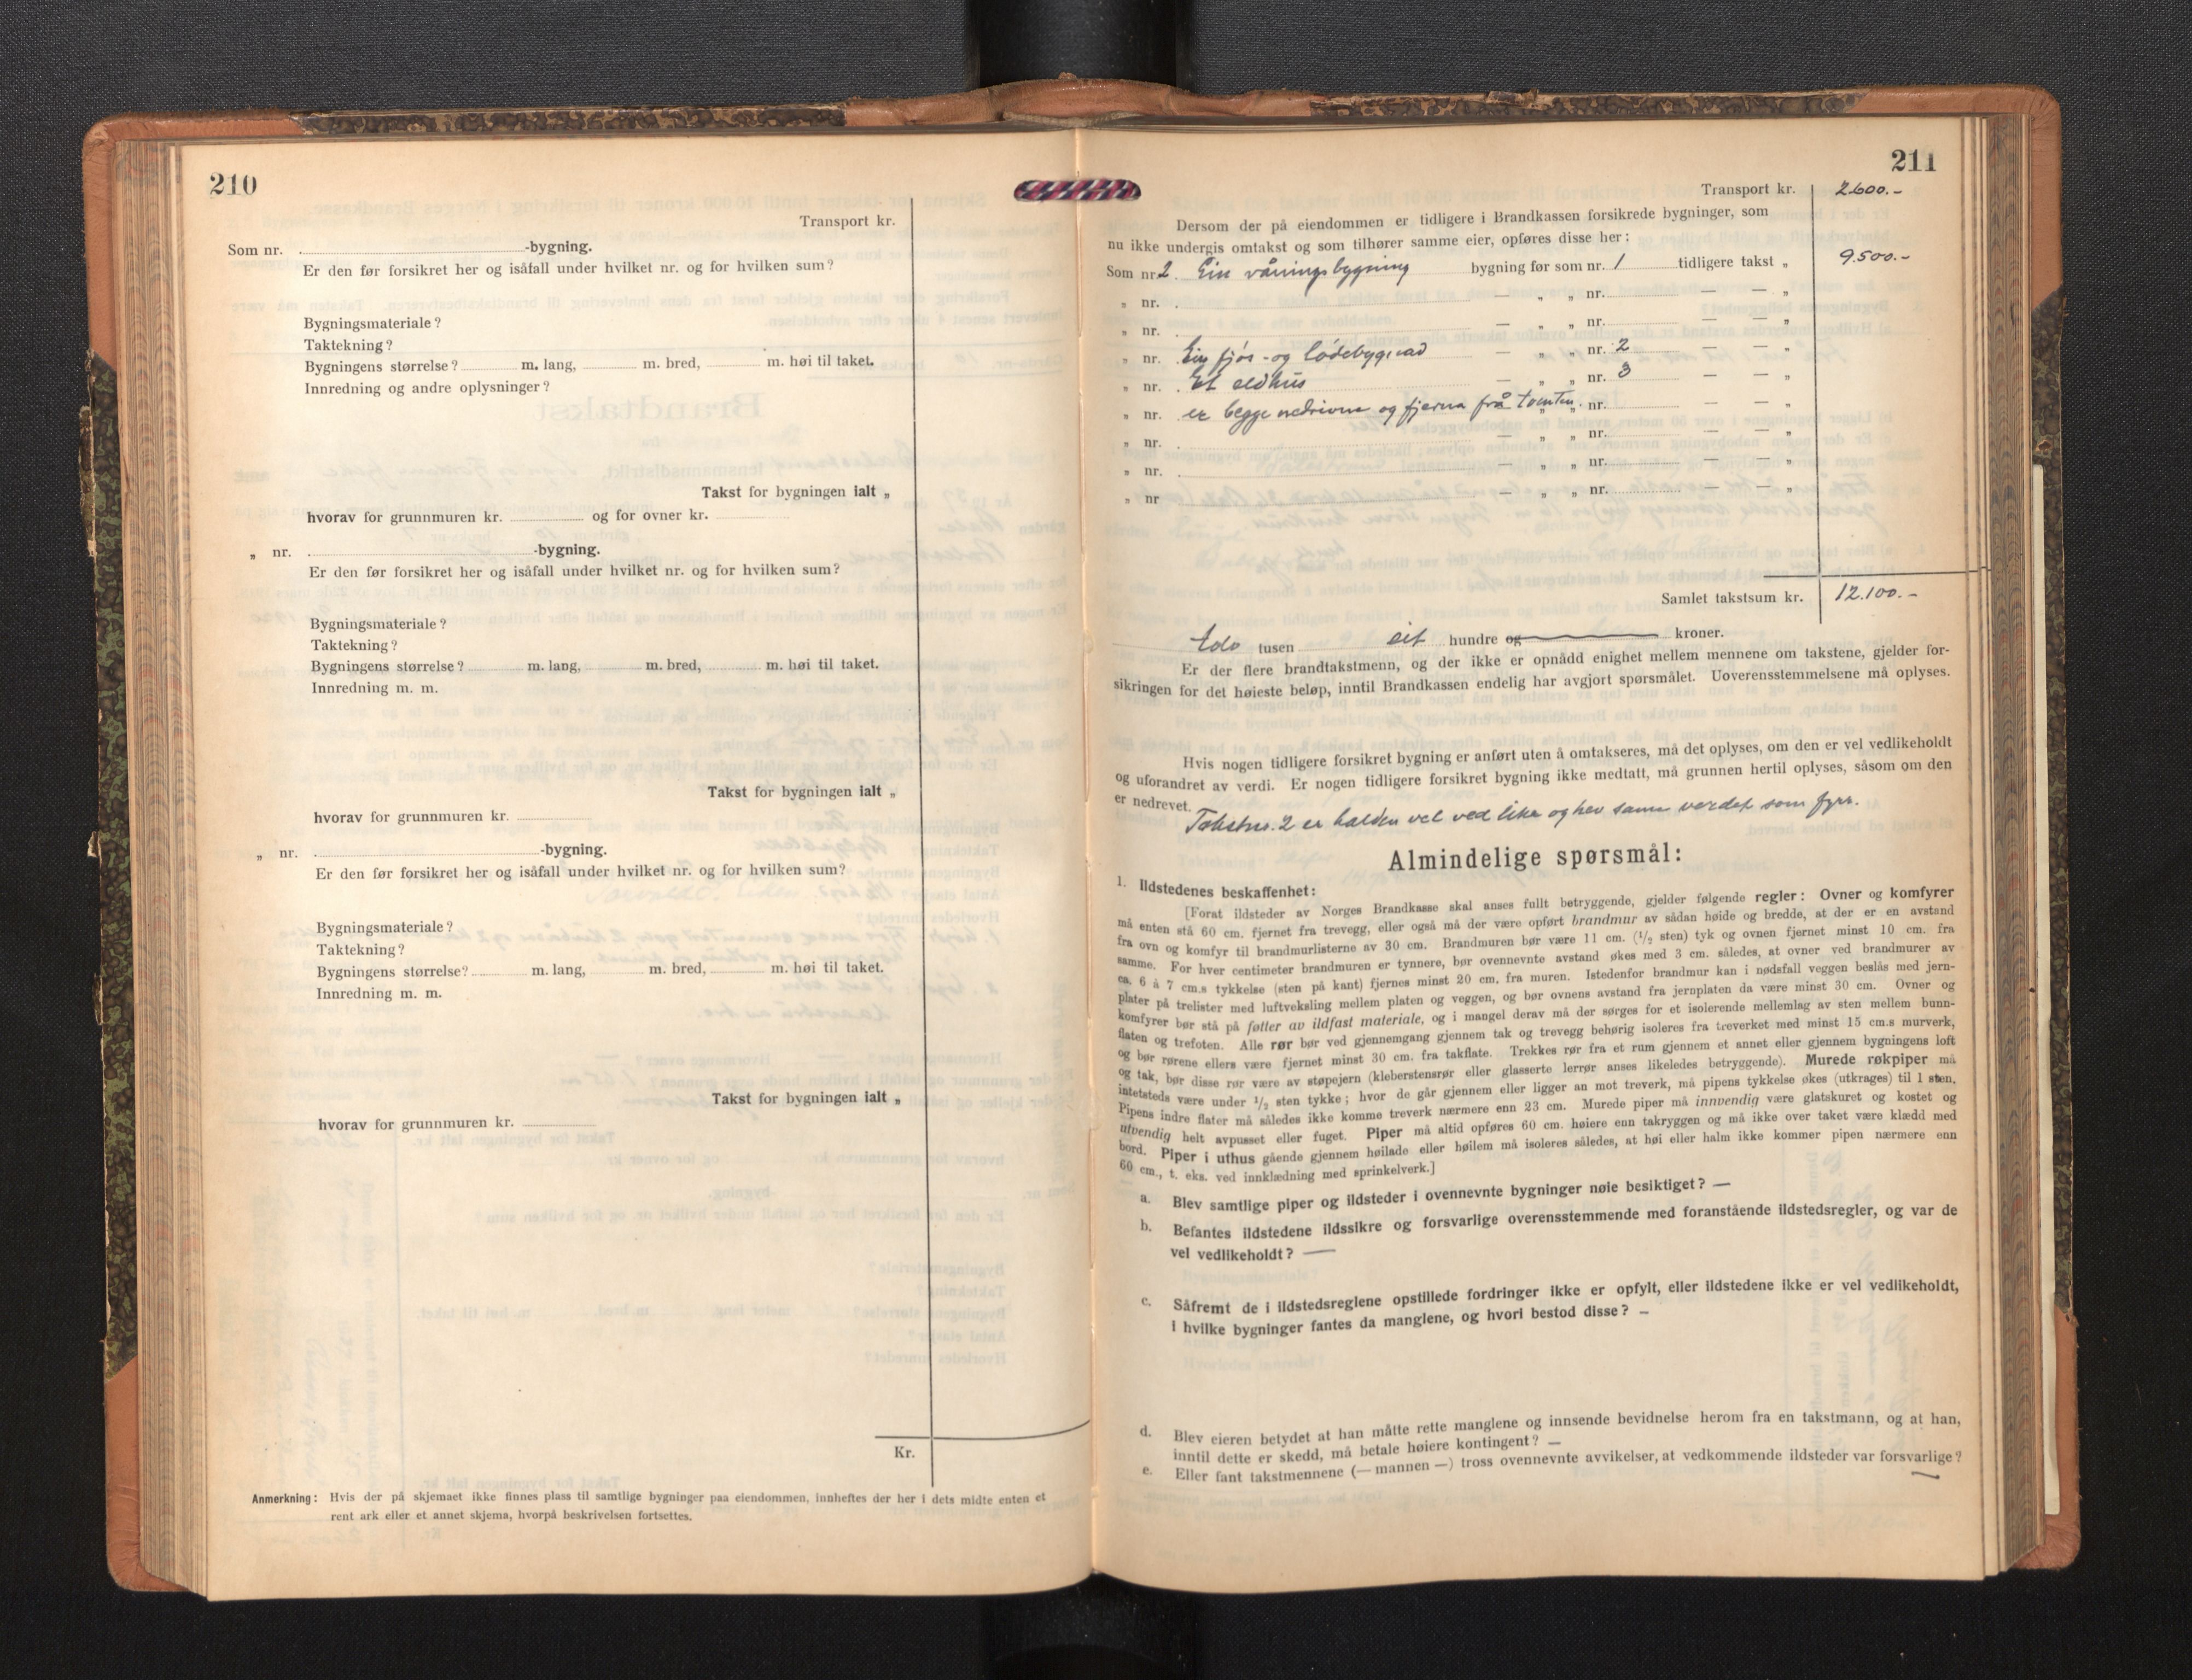 210
Transport kr.
Som nr. -bygning.
Er den før forsikret her og isåfall under hvilket nr. og for hvilken sum?
Bygningsmateriale?
Taktekning?
Bygningens størrelse? m. lang, m. bred, m. høi til taket.
Innredning og andre oplysninger?
Takst for bygningen ialt „
hvorav for grunnmuren kr. og for ovner kr.
„ nr. -bygning.
Er den før forsikret her og isåfall under hvilket nr. og for hvilken sum?
Bygningsmateriale?
Taktekning?
Bygningens størrelse? m. lang, m. bred, m. høi til taket.
Innredning m. m.
Takst for bygningen ialt „
hvorav for grunnmuren kr.
„ nr. -bygning.
Er den før forsikret her og isåfall under hvilket nr. og for hvilken sum?
Bygningsmateriale?
Taktekning?
Bygningens størrelse? m. lang, m. bred, m. høi til taket.
Innredning m. m.
Takst for bygningen ialt „
hvorav for grunnmuren kr.
Kr.
Anmerkning: Hvis der på skjemaet ikke finnes plass til samtlige bygninger paa eiendommen, innheftes der her i dets midte enten et
rent ark eller et annet skjema, hvorpå beskrivelsen fortsettes.
211
Transport kr. 2600.-
Dersom der på eiendommen er tidligere i Brandkassen forsikrede bygninger, som
nu ikke undergis omtakst og som tilhører samme eier, opføres disse her:
Som nr. 2 Ein våningsbygning bygning før som nr. 1 tidligere takst „ 9.500.-
„ nr. — „ „ nr. — — „
„ nr. — „ „ nr. — — „
„ nr. Ein fjøs- og lödebygnad — „ „ nr. 2 — — „
„ nr. Et eldhus — „ „ nr. 3 — — „
„ nr. er begge nedrivne og fjerna frå tomten. „ nr. — — „
„ nr. — „ „ nr. — — „
„ nr. — „ „ nr. — — „
„ nr — „ „ nr. — — „
Samlet takstsum kr. 12.100.-
tolv tusen eit hundre og kroner.
Er der flere brandtakstmenn, og der ikke er opnådd enighet mellem mennene om takstene, gjelder for-
sikringen for det høieste beløp, inntil Brandkassen endelig har avgjort spørsmålet. Uoverensstemmelsene må oplyses.
Hvis nogen tidligere forsikret bygning er anført uten å omtakseres, må det oplyses, om den er vel vedlikeholdt
og uforandret av verdi. Er nogen tidligere forsikret bygning ikke medtatt, må grunnen hertil oplyses, såsom om den
er nedrevet.
Takstnr. 2 er halden vel ved like og hev same verdet som fyrr.
Almindelige spørsmål:
1. Ildstedenes beskaffenhet:
[Forat ildsteder av Norges Brandkasse skal anses fullt betryggende, gjelder følgende regler: Ovner og komfyrer
må enten stå 60 cm. fjernet fra trevegg, eller også må der være opført brandmur av sådan høide og bredde, at der er en avstand
fra ovn og komfyr til brandmurlisterne av 30 cm. Brandmuren bør være 11 cm. (1/2 sten) tyk og ovnen fjernet minst 10 cm. fra
samme. For hver centimeter brandmuren er tynnere, bør ovennevnte avstand økes med 3 cm. således, at ovner ved brandmurer av
ca. 6 à 7 cm.s tykkelse (sten på kant) fjernes minst 20 cm. fra muren. Istedenfor brandmur kan i nødsfall veggen beslås med jern-
plater på trelister med luftveksling mellem platen og veggen, og bør ovnens avstand fra jernplaten da være minst 30 cm. Ovner og
komfyrer bør stå på føtter av ildfast materiale, og i mangel derav må der sørges for et isolerende mellemlag av sten mellem bunn-
flaten og trefoten. Alle rør bør ved gjennemgang gjennem tak og trevegg behørig isoleres fra treverket med minst 15 cm.s murverk,
og bør rørene ellers være fjernet minst 30 cm. fra takflate. Trekkes rør fra et rum gjennem et annet eller gjennem bygningens loft
og tak, bør disse rør være av støpejern (kleberstensrør eller glasserte lerrør anses likeledes betryggende). Murede røkpiper må
intetsteds være under 1/2 sten tykke; hvor de går gjennem eller ligger an mot treverk, må pipens tykkelse økes (utkrages) til 1 sten,
Pipens indre flater må således ikke komme treverk nærmere enn 23 cm. Murede piper må innvendig være glatskuret og kostet og
utvendig helt avpusset eller fuget. Piper må altid opføres 60 cm. høiere enn takryggen og må ikke over taket være klædd med
bord. Piper i uthus gående gjennem høilade eller høilem må isoleres således, at høi eller halm ikke kommer pipen nærmere enn
60 cm., t. eks. ved innklædning med sprinkelverk.]
a. Blev samtlige piper og ildsteder i ovennevnte bygninger nøie besiktiget? —
b. Befantes ildstedene ildssikre og forsvarlige overensstemmende med foranstående ildstedsregler, og var de
vel vedlikeholdt? —
c. Såfremt de i ildstedsreglene opstillede fordringer ikke er opfylt, eller ildstedene ikke er vel vedlikeholdt,
i hvilke bygninger fantes da manglene, og hvori bestod disse? —
d. Blev eieren betydet at han måtte rette manglene og innsende bevidnelse herom fra en takstmann, og at han,
inntil dette er skedd, må betale høiere kontingent? —
e. Eller fant takstmennene (— mannen —) tross ovennevnte avvikelser, at vedkommende ildsteder var forsvarlige?
—